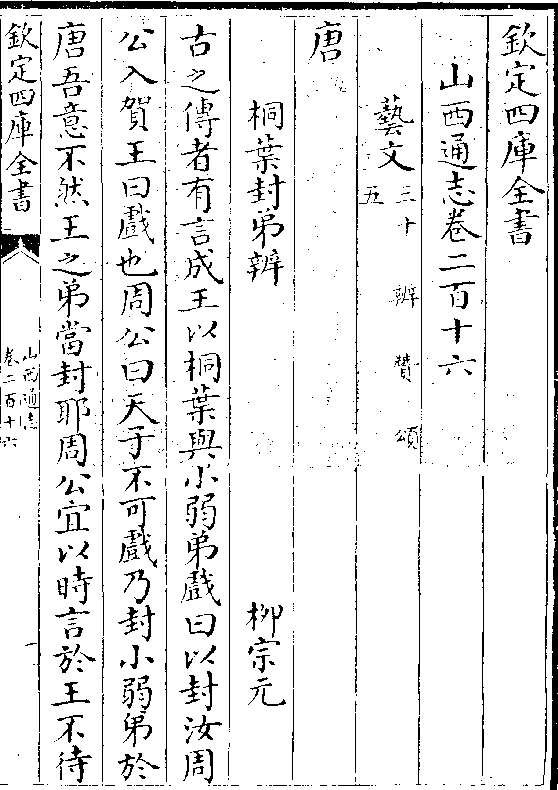 欽定四庫全書
山西通志卷二百十六
藝文三十五 辨 贊 頌
唐
桐葉封弟辨 柳宗元
古之傳者有言成王以桐葉與小弱弟戲曰以封汝周
公入賀王曰戲也周公曰天子不可戲乃封小弱弟於
唐吾意不然王之弟當封耶周公宜以時言於王不待
欽定四庫全書
山西通志
卷二百十六
一